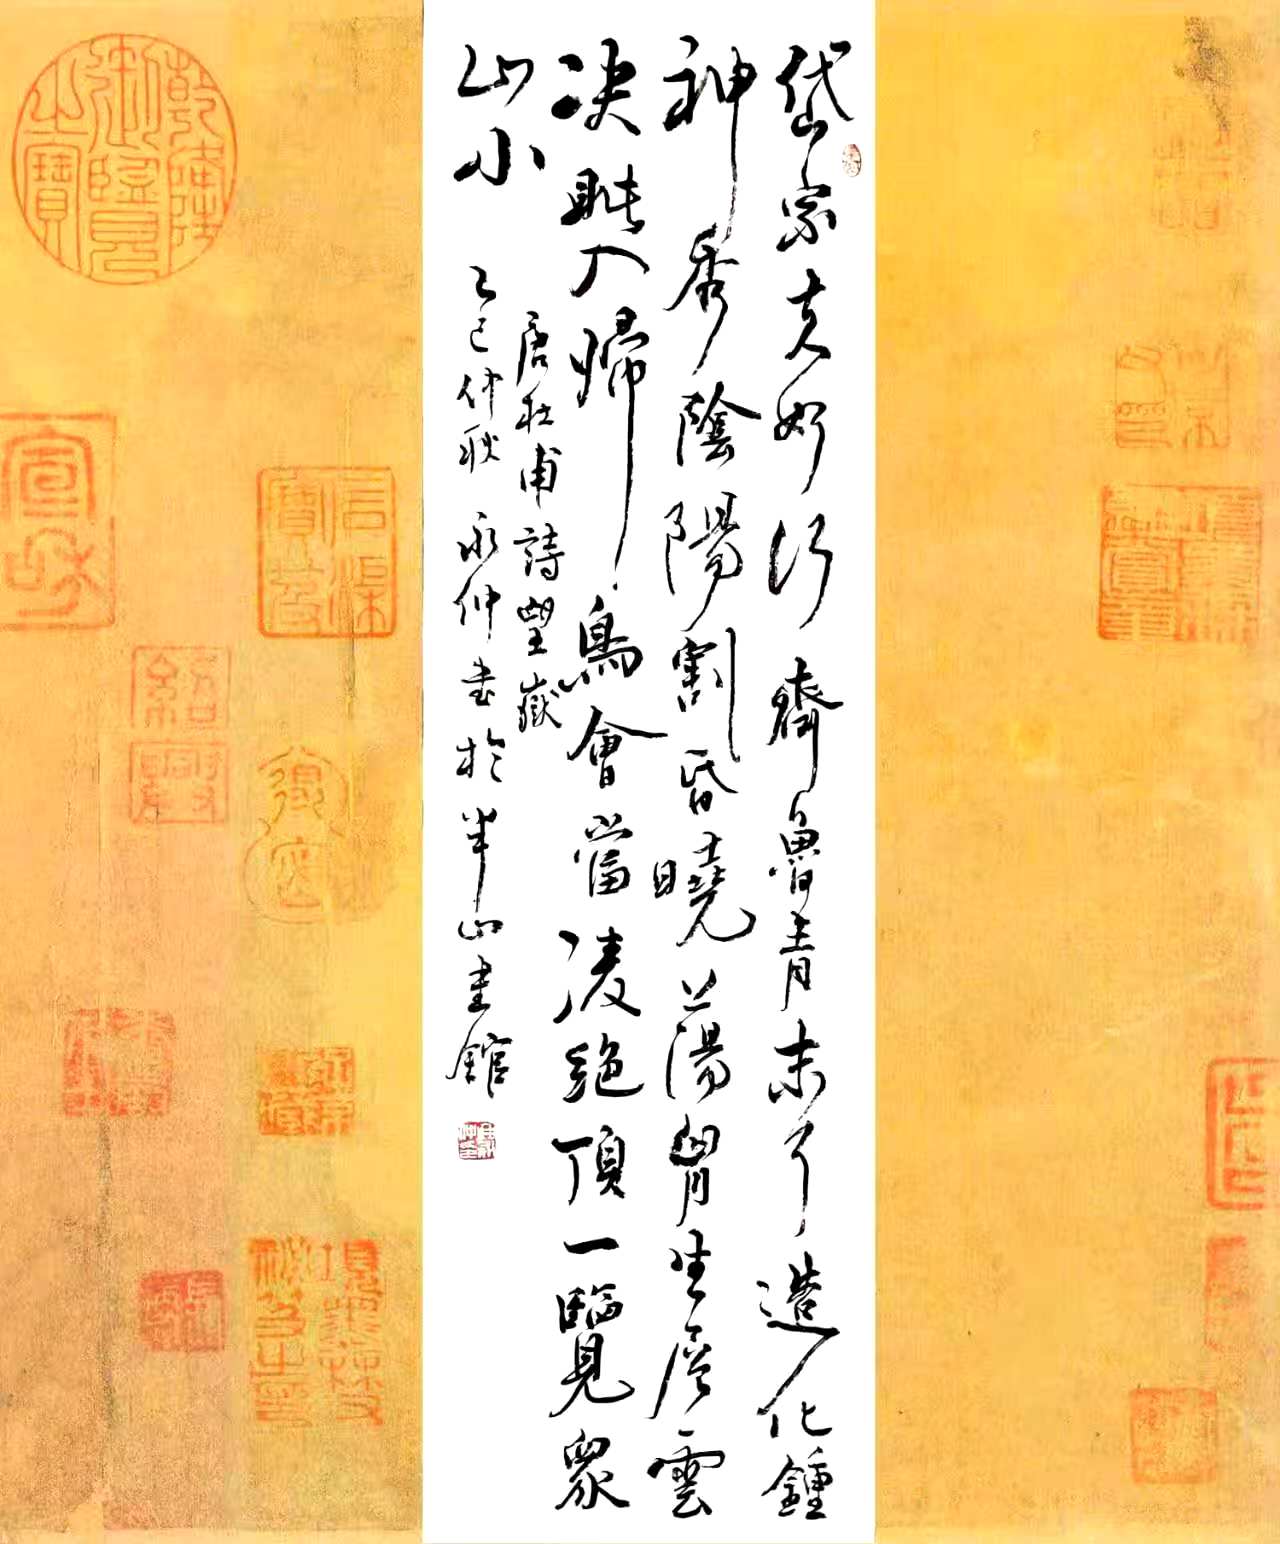 岱宗夫如何齊魯青未了造化鍾
神秀陰陽割昏曉蕩胷生層雲
決眥入歸鳥會當凌絕頂一覽眾
山小
唐杜甫詩望嶽
乙巳仲秋 永仲書於半山書館
乾隆御覽之寶
宣和
紹興
項墨林父祕笈之印